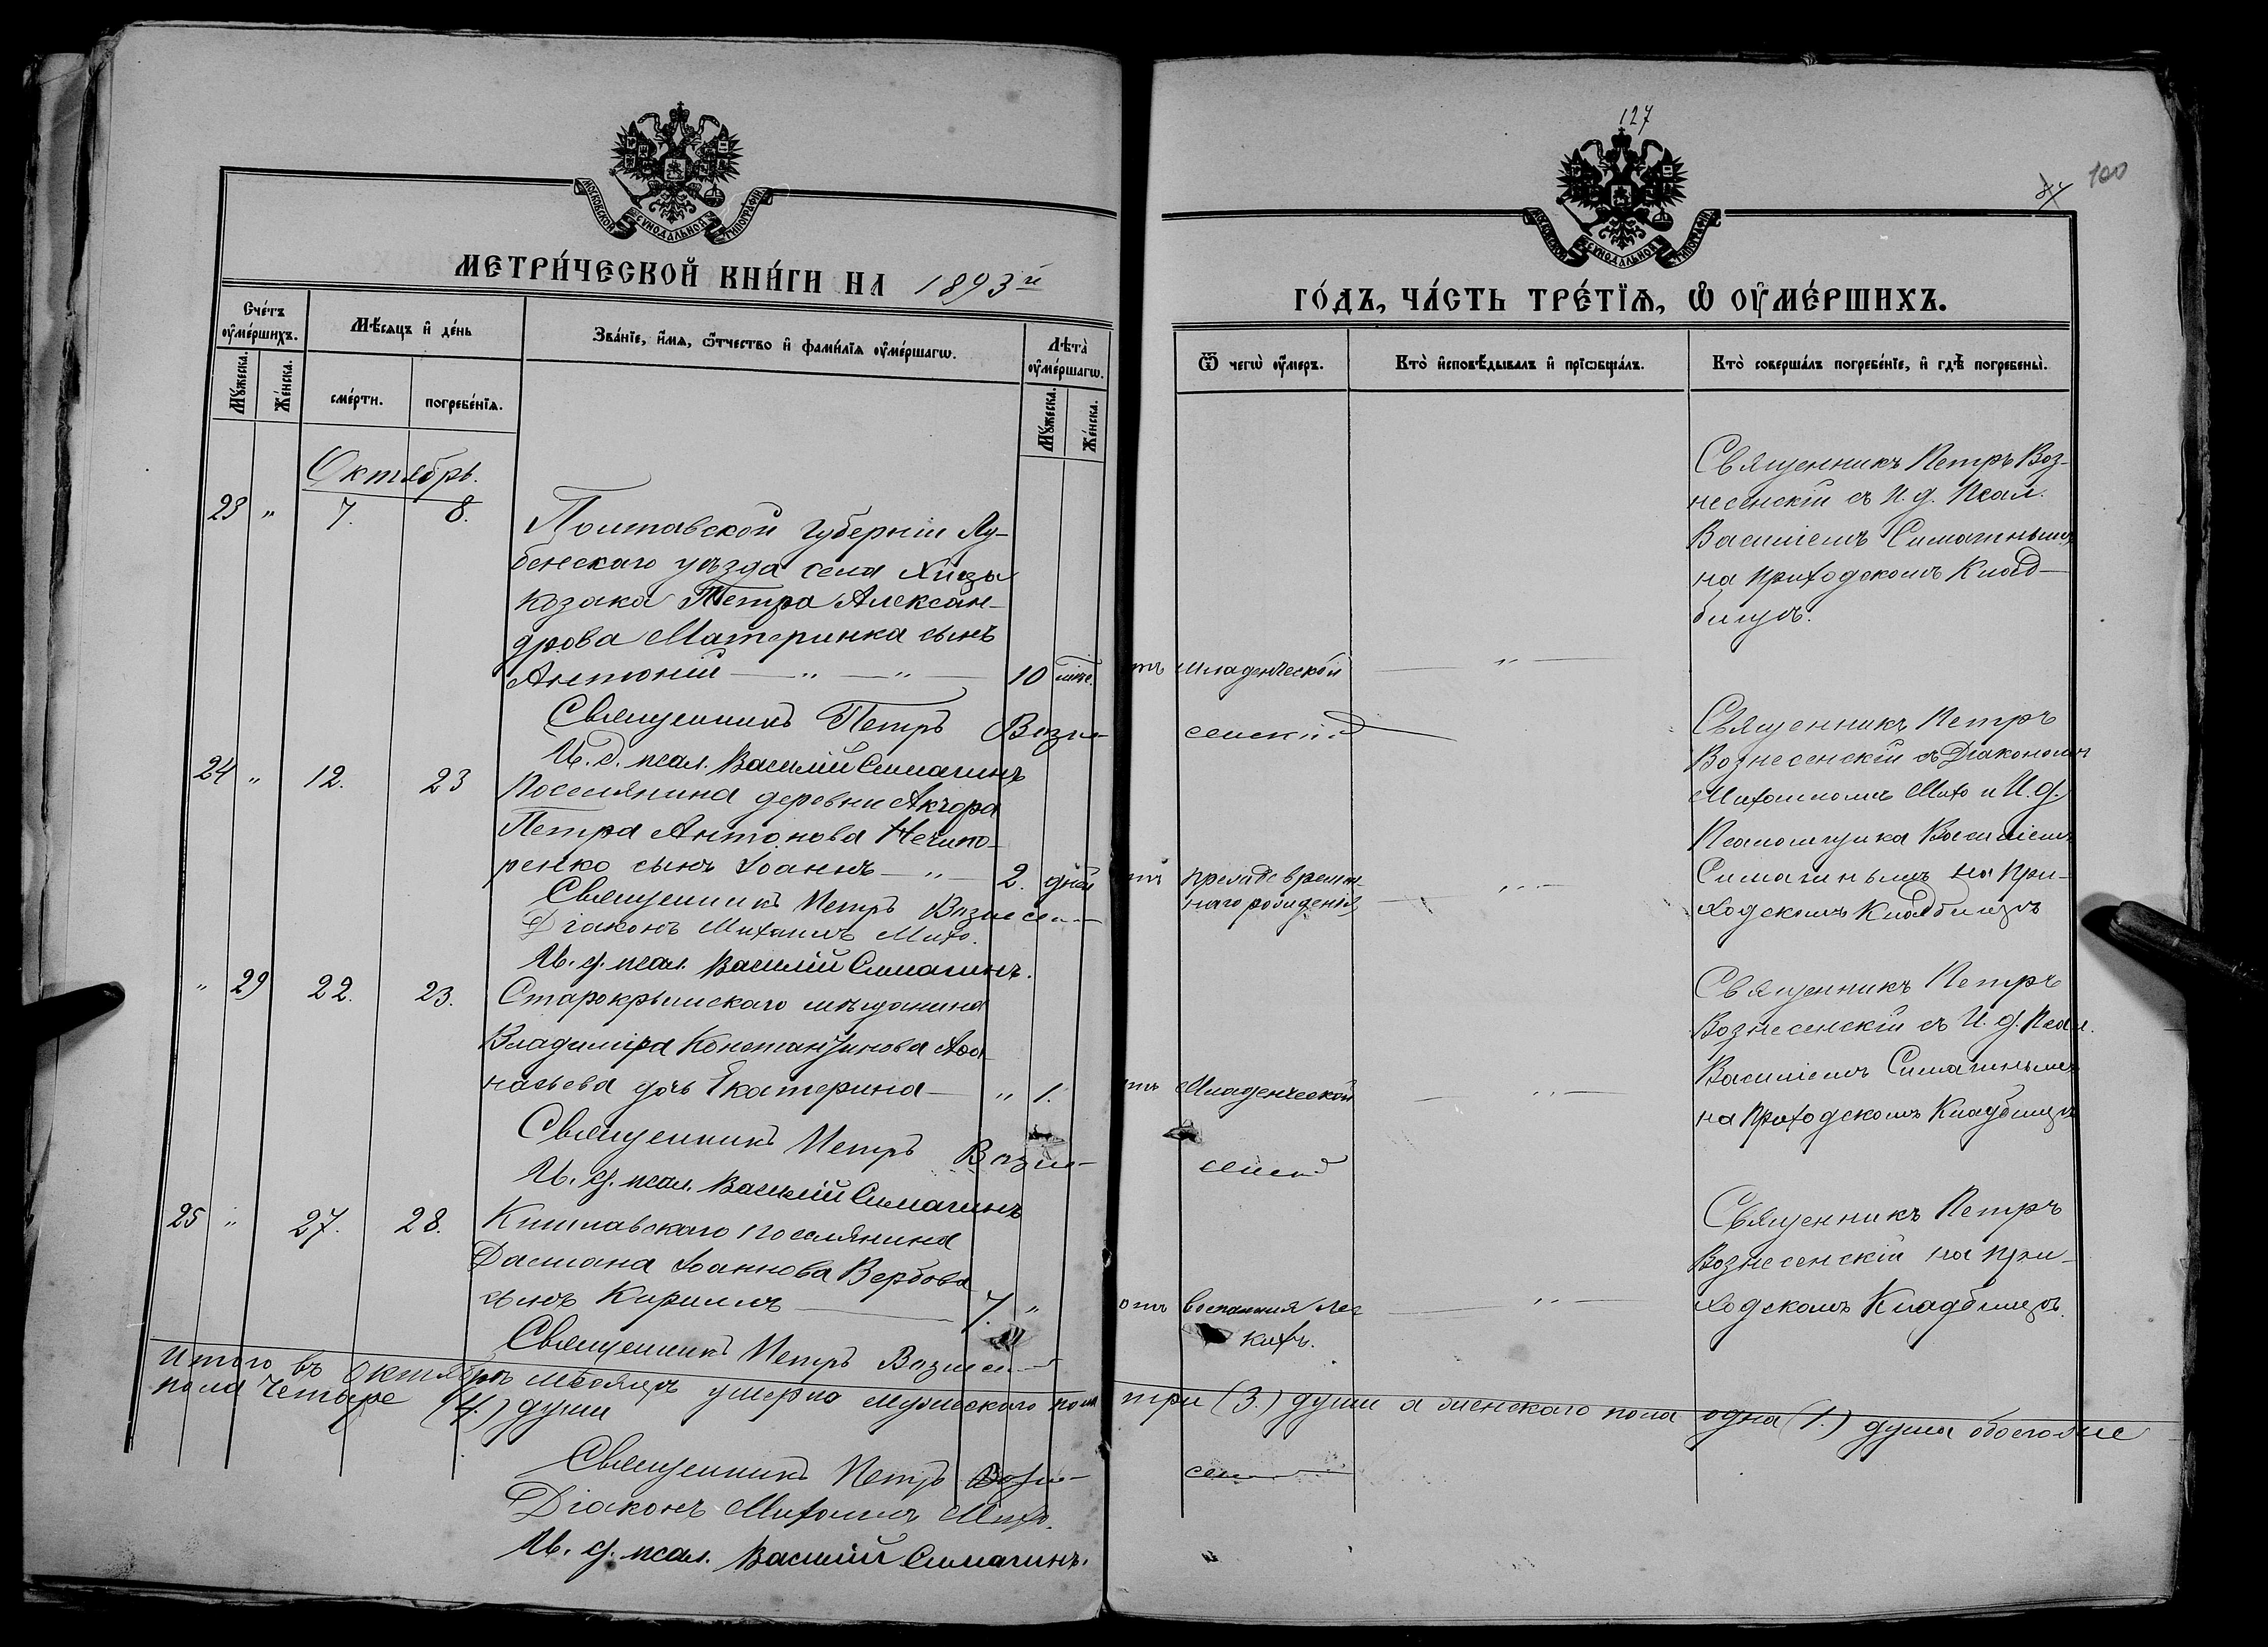 127
100
МОСКОВСКОЙ СѴНОДАЛЬНОЙ ТИПОГРАФІИ
МОСКОВСКОЙ СѴНОДАЛЬНОЙ ТИПОГРАФІИ
МЕТРИ́ЧЕСКОЙ КНИ́ГИ НА 1893й
ГО́ДЪ, ЧА́СТЬ ТРЕ́ТІѦ, Ѡ҆ ОУ҆МЕ́РШИХЪ.
Сче́тъ оу҆ме́ршихъ.
Му́жеска.
Же́нска.
Мѣ́сѧцъ и҆ де́нь
сме́рти.
погребе́нїѧ.
Зва́нїе, и҆́мѧ, ѻ҆́тчество и҆ фами́лїѧ оу҆ме́ршагѡ.
Лѣ́та̀ оу҆ме́ршагѡ.
Му́жеска.
Же́нска.
Ѿ чегѡ̀ оу҆́меръ.
Кто̀ и҆сповѣ́дывалъ и҆ прїѡбща́лъ.
Кто̀ соверша́лъ погребе́нїе, и҆ гдѣ̀ погребены̀.
Октябрь.
23 " 7. 8.
Полтавской губерніи Лу-
бенскаго уѣзда села Хицы
козака Петра Алексан-
дрова Материнка сынъ
Антоній — " — " — 10 мѣс.
отъ младенческой
— " —
Священникъ Петръ Воз-
несенскій съ И. д. Псал.
Василіемъ Симагинымъ
на приходскомъ Клад-
бищѣ.
Священникъ Петръ Возне-
сенскій
И. д. псал. Василій Симагинъ
24 " 12. 23
Поселянина деревни Акчора
Петра Антонова Нечипо-
ренко сынъ Іоаннъ — " — 2. дней
отъ преждевремен-
наго рожденія
— " —
Священникъ Петръ
Вознесенскій съ Діакономъ
Михаиломъ Михо и И. д.
Псаломщика Василіемъ
Симагинымъ на при-
ходскомъ Кладбищѣ
Священникъ Петръ Вознесен
Діаконъ Михаилъ Михо.
И. д. псал. Василій Симагинъ.
" 29 22. 23.
Старокрымскаго мѣщанина
Владиміра Константинова Афа-
насьева дочь Екатерина — " 1.
отъ Младенческой
— " —
Священникъ Петръ
Вознесенскій съ И. д. Псал.
Василіемъ Симагинымъ
на приходскомъ Кладбищѣ
Священникъ Петръ Возне-
сенскій
И. д. псал. Василій Симагинъ
25 " 27. 28.
Кишлавскаго поселянина
Даміана Іоаннова Вербова
сынъ Кириллъ — 7. "
отъ воспаленія лег
кихъ.
— " —
Священникъ Петръ
Вознесенскій на при-
ходскомъ Кладбищѣ.
Священникъ Петръ Вознесен
Итого въ Октябрѣ мѣсяцѣ умерло мужескаго пола три (3.) души а женскаго пола одна (1.) душа обоегоже
пола Четыре (4.) души
Священникъ Петръ Возне-
сен
Діаконъ Михаилъ Михо.
И. д. псал. Василій Симагинъ.